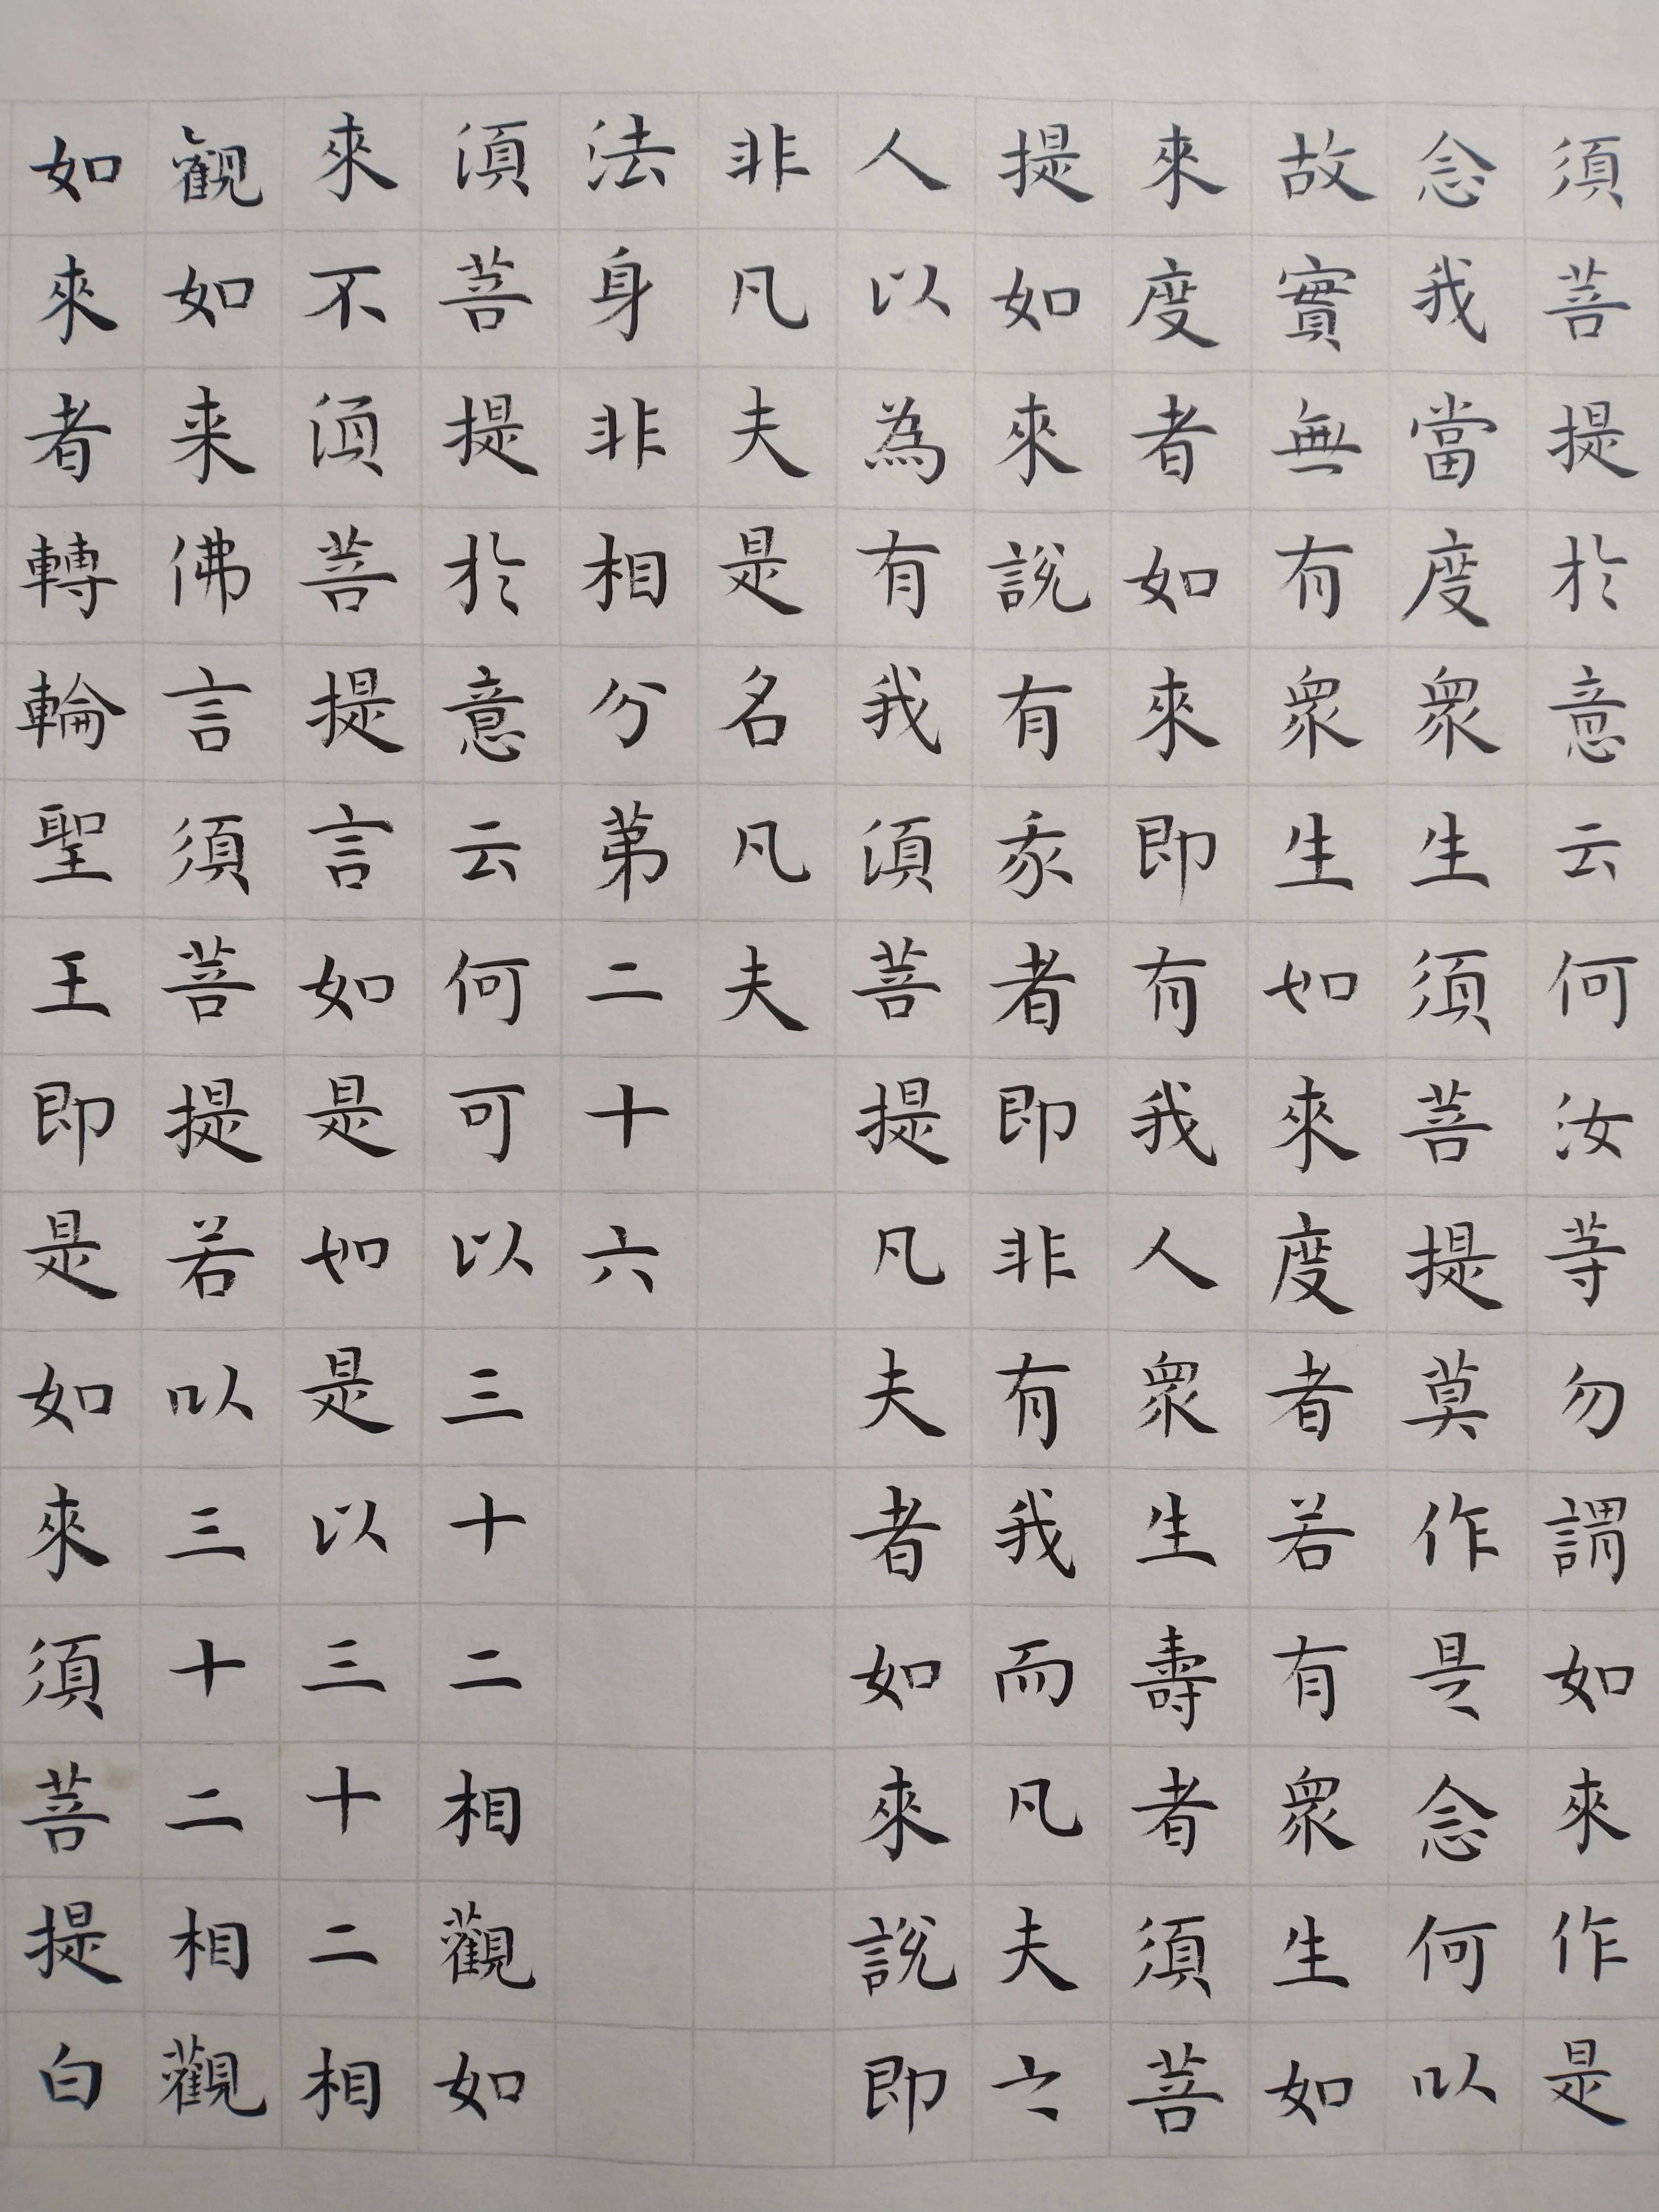 須菩提於意云何汝等勿謂如來作是
念我當度衆生須菩提莫作是念何以
故實無有衆生如來度者若有衆生如
來度者如來即有我人衆生壽者須菩
提如來說有我者即非有我而凡夫之
人以為有我須菩提凡夫者如來說即
非凡夫是名凡夫
法身非相分第二十六
須菩提於意云何可以三十二相觀如
來不須菩提言如是如是以三十二相
觀如来佛言須菩提若以三十二相觀
如來者轉輪聖王即是如來須菩提白